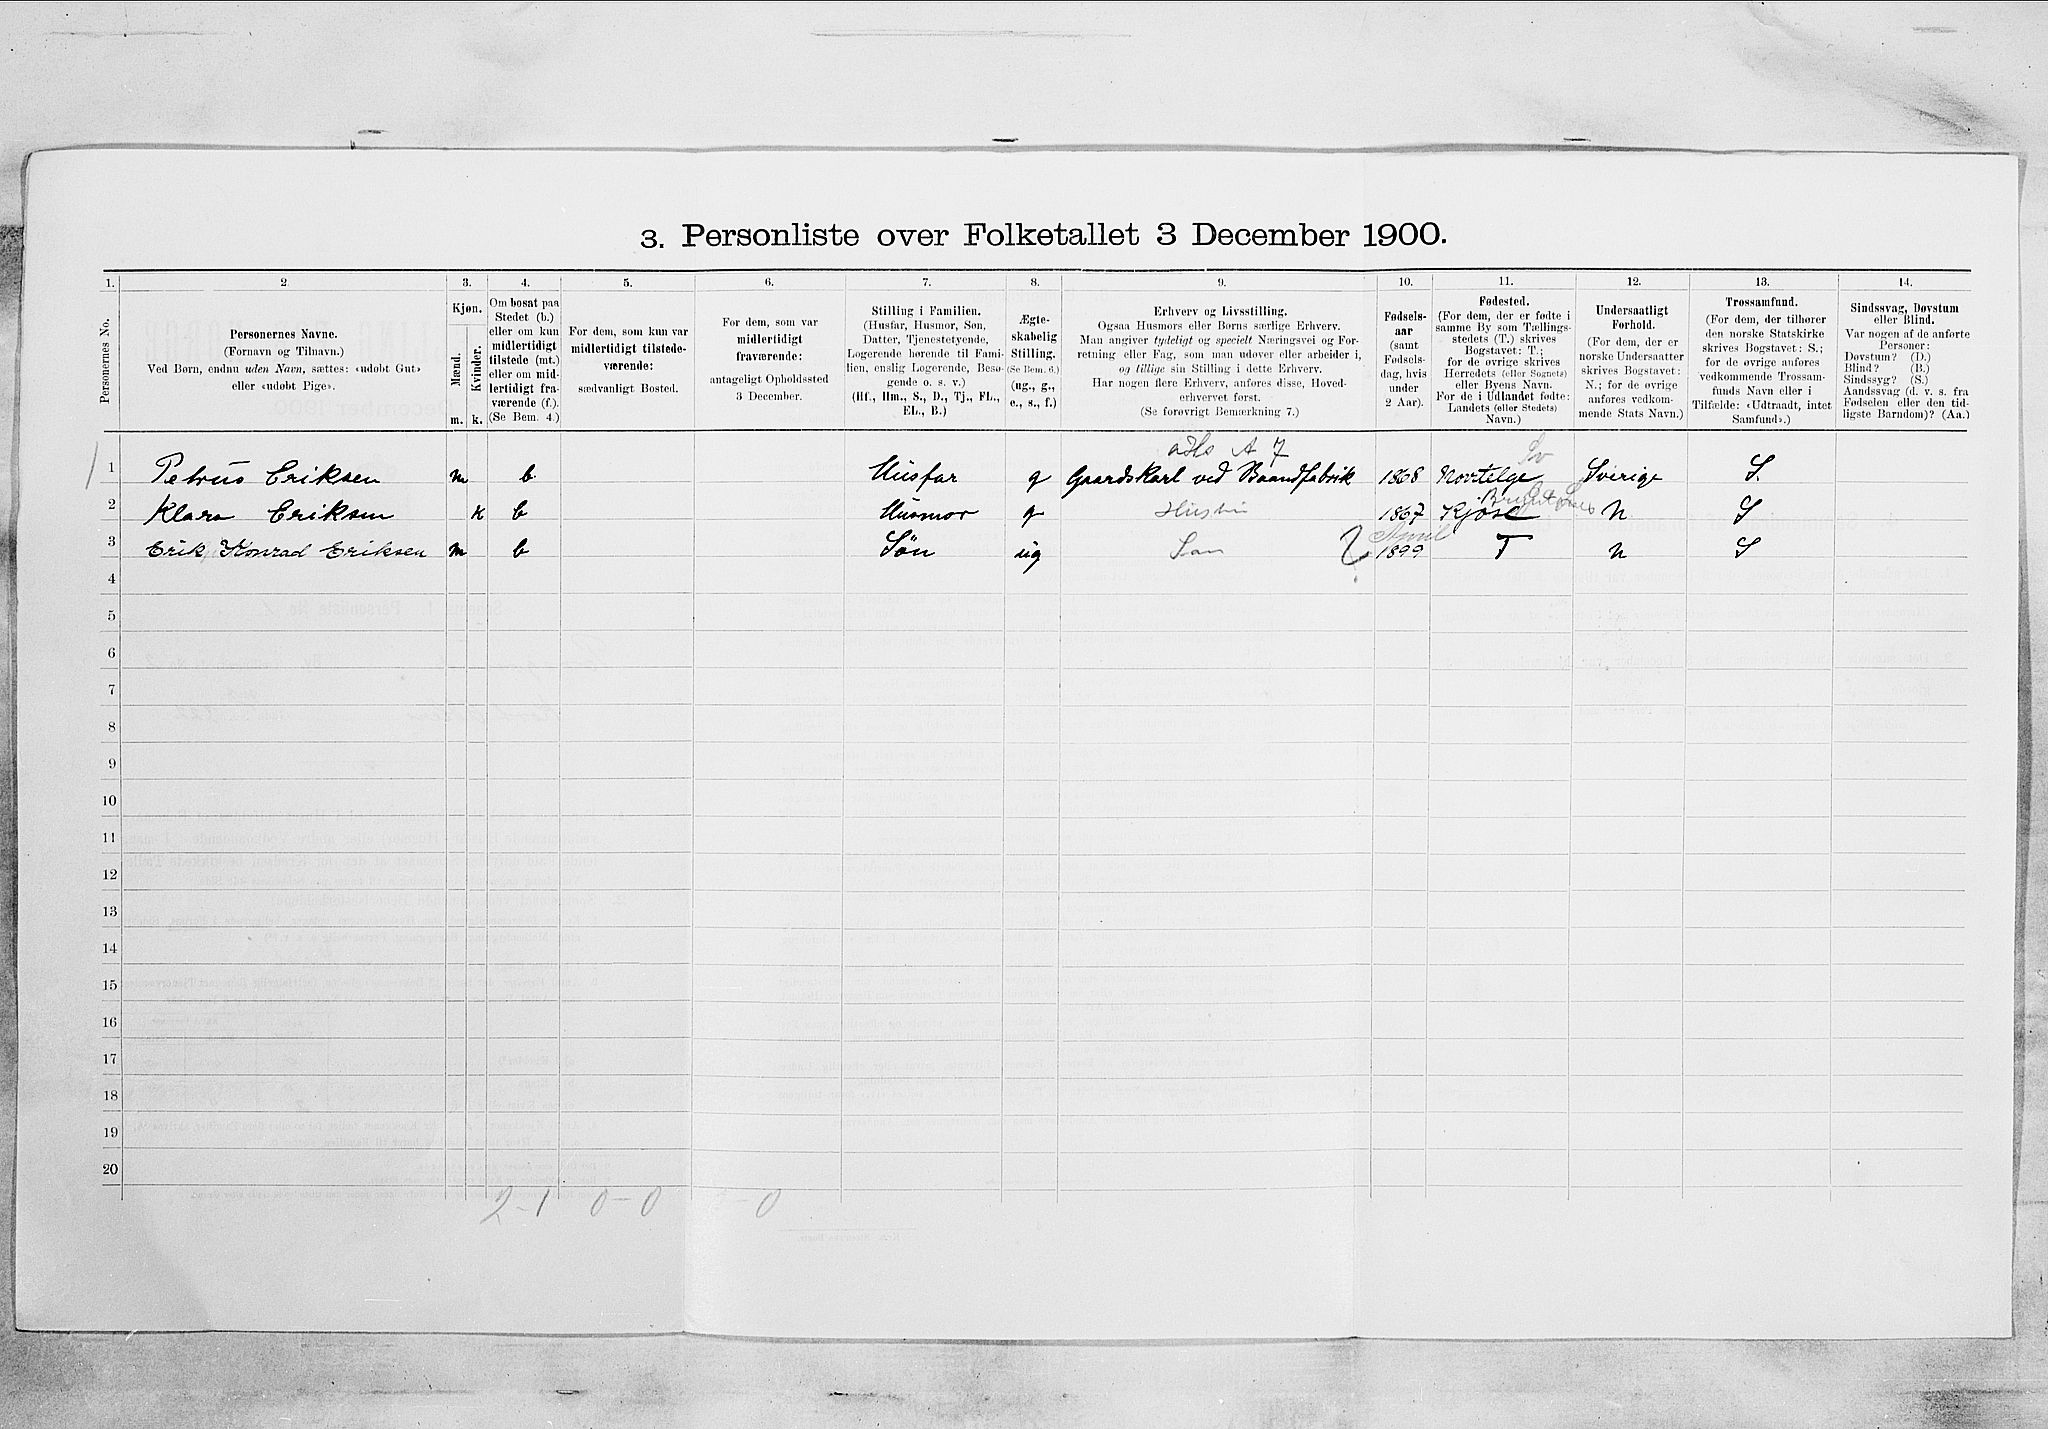 3. Personliste over Folketallet 3 December 1900.
1. 2. 3. 4. 5. 6. 7. 8. 9. 10. 11. 12. 13. 14.
Personernes No.
Personernes Navne.
(Fornavn og Tilnavn.)
Ved Børn, endnu uden Navn, sættes: «udøbt Gut»
eller «udøbt Pige».
Kjøn.
Mænd.
Kvinder.
m. k.
Om bosat paa
Stedet (b.)
eller om kun
midlertidigt
tilstede (mt.)
eller om mid-
lertidigt fra-
værende (f.).
(Se Bem. 4.)
For dem, som kun var
midlertidigt tilstede-
værende:
sædvanligt Bosted.
For dem, som var
midlertidigt
fraværende:
antageligt Opholdssted
3 December.
Stilling i Familien.
(Husfar, Husmor, Søn,
Datter, Tjenestetyende,
Logerende hørende til Fami-
lien, enslig Logerende, Besø-
gende o. s. v.)
(Hf., Hm., S., D., Tj., FL.,
EL., B.)
Ægte-
skabelig
Stilling.
(Se Bem. 6.)
(ug., g.,
e., s., f.)
Erhverv og Livsstilling.
Ogsaa Husmors eller Børns særlige Erhverv.
Man angiver tydeligt og specielt Næringsvei og For-
retning eller Fag, som man udøver eller arbeider i,
og tillige sin Stilling i dette Erhverv.
Har nogen flere Erhverv, anføres disse, Hoved-
erhvervet først.
(Se forøvrigt Bemærkning 7.)
Fødsels-
aar
(samt
Fødsels-
dag, hvis
under
2 Aar).
Fødested.
(For dem, der er fødte i
samme By som Tællings-
stedets (T.) skrives
Bogstavet: T.;
for de øvrige skrives
Herredets (eller Sognets)
eller Byens Navn.
For de i Udlandet fødte:
Landets (eller Stedets)
Navn.)
Undersaatligt
Forhold.
(For dem, der er
norske Undersaatter
skrives Bogstavet:
N.; for de øvrige
anføres vedkom-
mende Stats Navn.)
Trossamfund.
(For dem, der tilhører
den norske Statskirke
skrives Bogstavet: S.;
for de øvrige anføres
vedkommende Trossam-
funds Navn eller i
Tilfælde: «Udtraadt, intet
Samfund».)
Sindssvag, Døvstum
eller Blind.
Var nogen af de anførte
Personer:
Døvstum? (D.)
Blind? (B.)
Sindssyg? (S.)
Aandssvag (d. v. s. fra
Fødselen eller den tid-
ligste Barndom)? (Aa.)
A 7
Sv
1 Petrus Eriksen m b. Husfar g Gaardskarl ved Baandfabrik 1868 Nortelge Sverige S.
2 Klara Eriksen k b Husmor g Hustru 1867 Kjose N S
April
3 Erik Konrad Eriksen m b Søn ug Søn ? 1899 T N S
4
5
6
7
8
9
10
11
12
13
14
15
16
17
18
19
20
2-1 0-0 -0